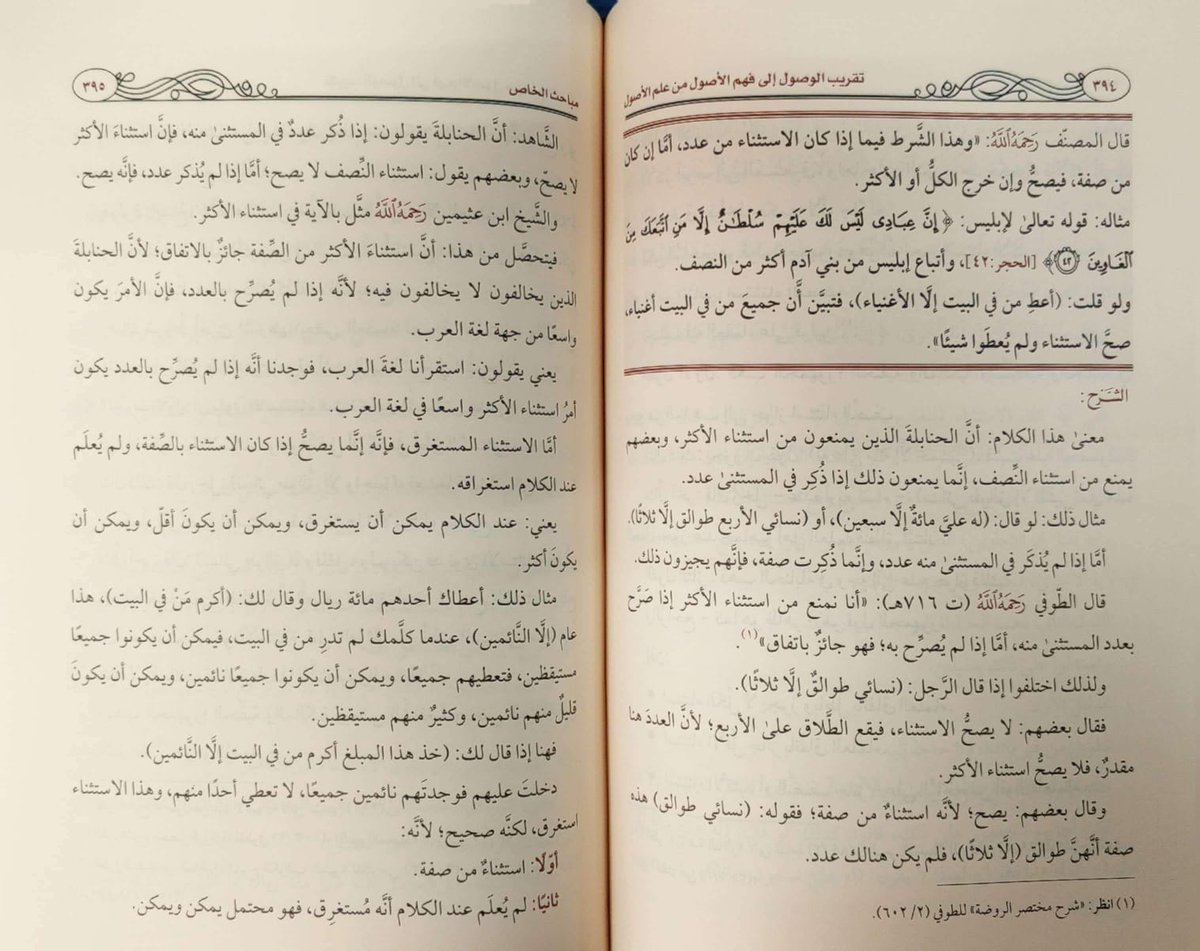 ٣٩٤
تقريب الوصول إلى فهم الأصول من علم الأصول
قال المصنّف رَحِمَهُ ٱللَّهُ: «وهذا الشَّرط فيما إذا كان الاستثناء من عدد، أمَّا إن كان
من صفة، فيصحُّ وإن خرج الكلُّ أو الأكثر.
مثاله: قوله تعالىٰ لإبليس: ﴿إِنَّ عِبَادِى لَيْسَ لَكَ عَلَيْهِمْ سُلْطَـٰنٌ إِلَّا مَنِ ٱتَّبَعَكَ مِنَ
ٱلْغَاوِينَ ٤٢﴾ [الحجر:٤٢]، وأتباع إبليس من بني آدم أكثر من النصف.
ولو قلت: (أعطِ من في البيت إلَّا الأغنياء)، فتبيَّن أَّن جميعَ من في البيت أغنياء،
صحَّ الاستثناء ولم يُعطَوا شيئًا».
الشَّرح:
معنىٰ هذا الكلام: أنَّ الحنابلةَ الذين يمنعون من استثناء الأكثر، وبعضهم
يمنع من استثناء النِّصف، إنَّما يمنعون ذلك إذا ذُكِر في المستثنىٰ عدد.
مثال ذلك: لو قال: (له عليَّ مائةٌ إلَّا سبعين)، أو (نسائي الأربع طوالق إلَّا ثلاثًا).
أمَّا إذا لم يُذكَر في المستثنىٰ منه عدد، وإنَّما ذُكِرت صفة، فإنَّهم يجيزون ذلك.
قال الطّوفي رَحِمَهُ ٱللَّهُ (ت ٧١٦هـ): «أنا نمنع من استثناء الأكثر إذا صَرَّح
بعدد المستثنىٰ منه، أمَّا إذا لم يُصرِّح به؛ فهو جائزٌ باتفاق»(١).
ولذلك اختلفوا إذا قال الرَّجل: (نسائي طوالقٌ إلَّا ثلاثًا).
فقال بعضهم: لا يصحُّ الاستثناء، فيقع الطَّلاق علىٰ الأربع؛ لأنَّ العددَ هنا
مقدرٌ، فلا يصحُّ استثناء الأكثر.
وقال بعضهم: يصح؛ لأنَّه استثناءٌ من صفة؛ فقوله: (نسائي طوالق) هذه
صفة أنَّهنَّ طوالق (إلَّا ثلاثًا)، فلم يكن هنالك عدد.
(١) انظر: «شرح مختصر الروضة» للطوفي (٢/ ٦٠٢).
مباحث الخاص
٣٩٥
الشَّاهد: أنَّ الحنابلةَ يقولون: إذا ذُكر عددٌ في المستثنىٰ منه، فإنَّ استثناءَ الأكثر
لا يصحّ، وبعضهم يقول: استثناء النِّصف لا يصح؛ أمَّا إذا لم يُذكر عدد، فإنَّه يصح.
والشَّيخ ابن عثيمين رَحِمَهُ ٱللَّهُ مثَّل بالآية في استثناء الأكثر.
فيتحصَّل من هذا: أنَّ استثناءَ الأكثر من الصِّفة جائزٌ بالاتفاق؛ لأنَّ الحنابلةَ
الذين يخالفون لا يخالفون فيه؛ لأنَّه إذا لم يُصرِّح بالعدد، فإنَّ الأمرَ يكون
واسعًا من جهة لغة العرب.
يعني يقولون: استقرأنا لغةَ العرب، فوجدنا أنَّه إذا لم يُصرِّح بالعدد يكون
أمرُ استثناء الأكثر واسعًا في لغة العرب.
أمَّا الاستثناء المستغرق، فإنَّه إنَّما يصحُّ إذا كان الاستثناء بالصِّفة، ولم يُعلَم
عند الكلام استغراقه.
يعني: عند الكلام يمكن أن يستغرق، ويمكن أن يكونَ أقلّ، ويمكن أن
يكونَ أكثر.
مثال ذلك: أعطاك أحدهم مائة ريال وقال لك: (أكرم مَنْ في البيت)، هذا
عام (إلَّا النَّائمين)، عندما كلَّمك لم تدرِ من في البيت، فيمكن أن يكونوا جميعًا
مستيقظين، فتعطيهم جميعًا، ويمكن أن يكونوا جميعًا نائمين، ويمكن أن يكونَ
قليلٌ منهم نائمين، وكثيرٌ منهم مستيقظين.
فهنا إذا قال لك: (خذ هذا المبلغ أكرم من في البيت إلَّا النَّائمين).
دخلتَ عليهم فوجدتَهم نائمين جميعًا، لا تعطي أحدًا منهم، وهذا الاستثناء
استغرق، لكنَّه صحيح؛ لأنَّه:
أوَّلًا: استثناءٌ من صفة.
ثانيًا: لم يُعلَم عند الكلام أنَّه مُستغرِق، فهو محتمل يمكن ويمكن.